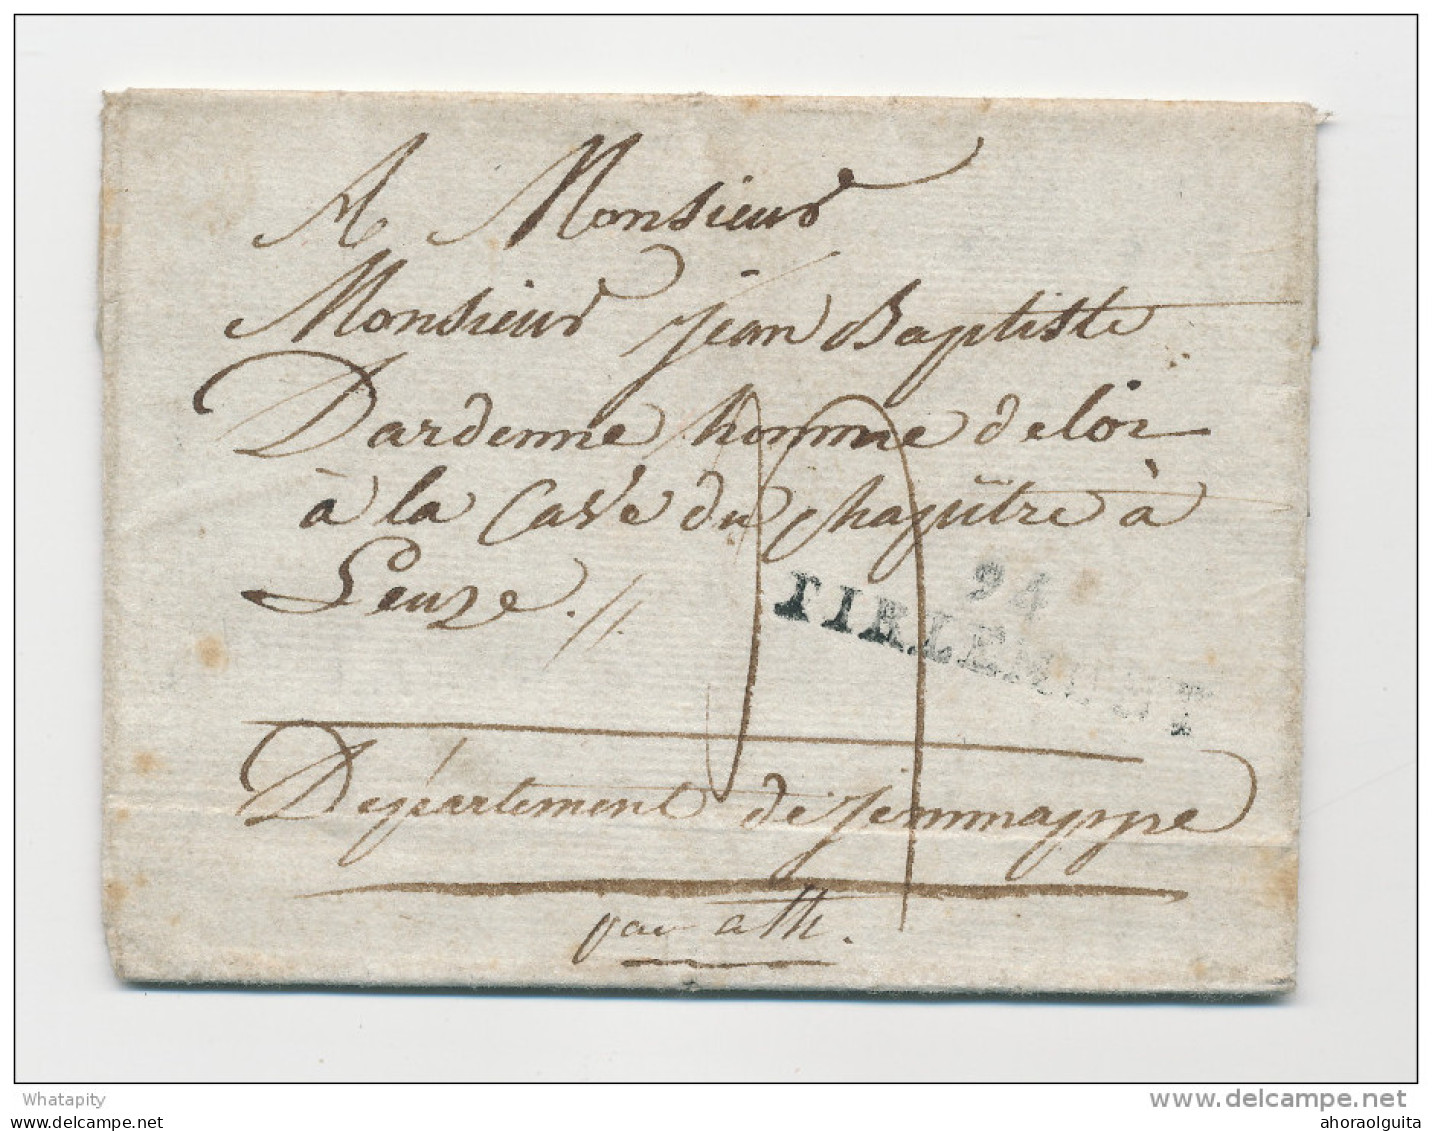 A Monsieur
Monsieur jean Baptiste
Dardenne homme de loi
à la Cave du chapitre à
Leuze.//
94
TIRLEMONT
Département de jemmappe
par ath.
Whatapity
pict.com
www.delcampe.net
ahoraolguita